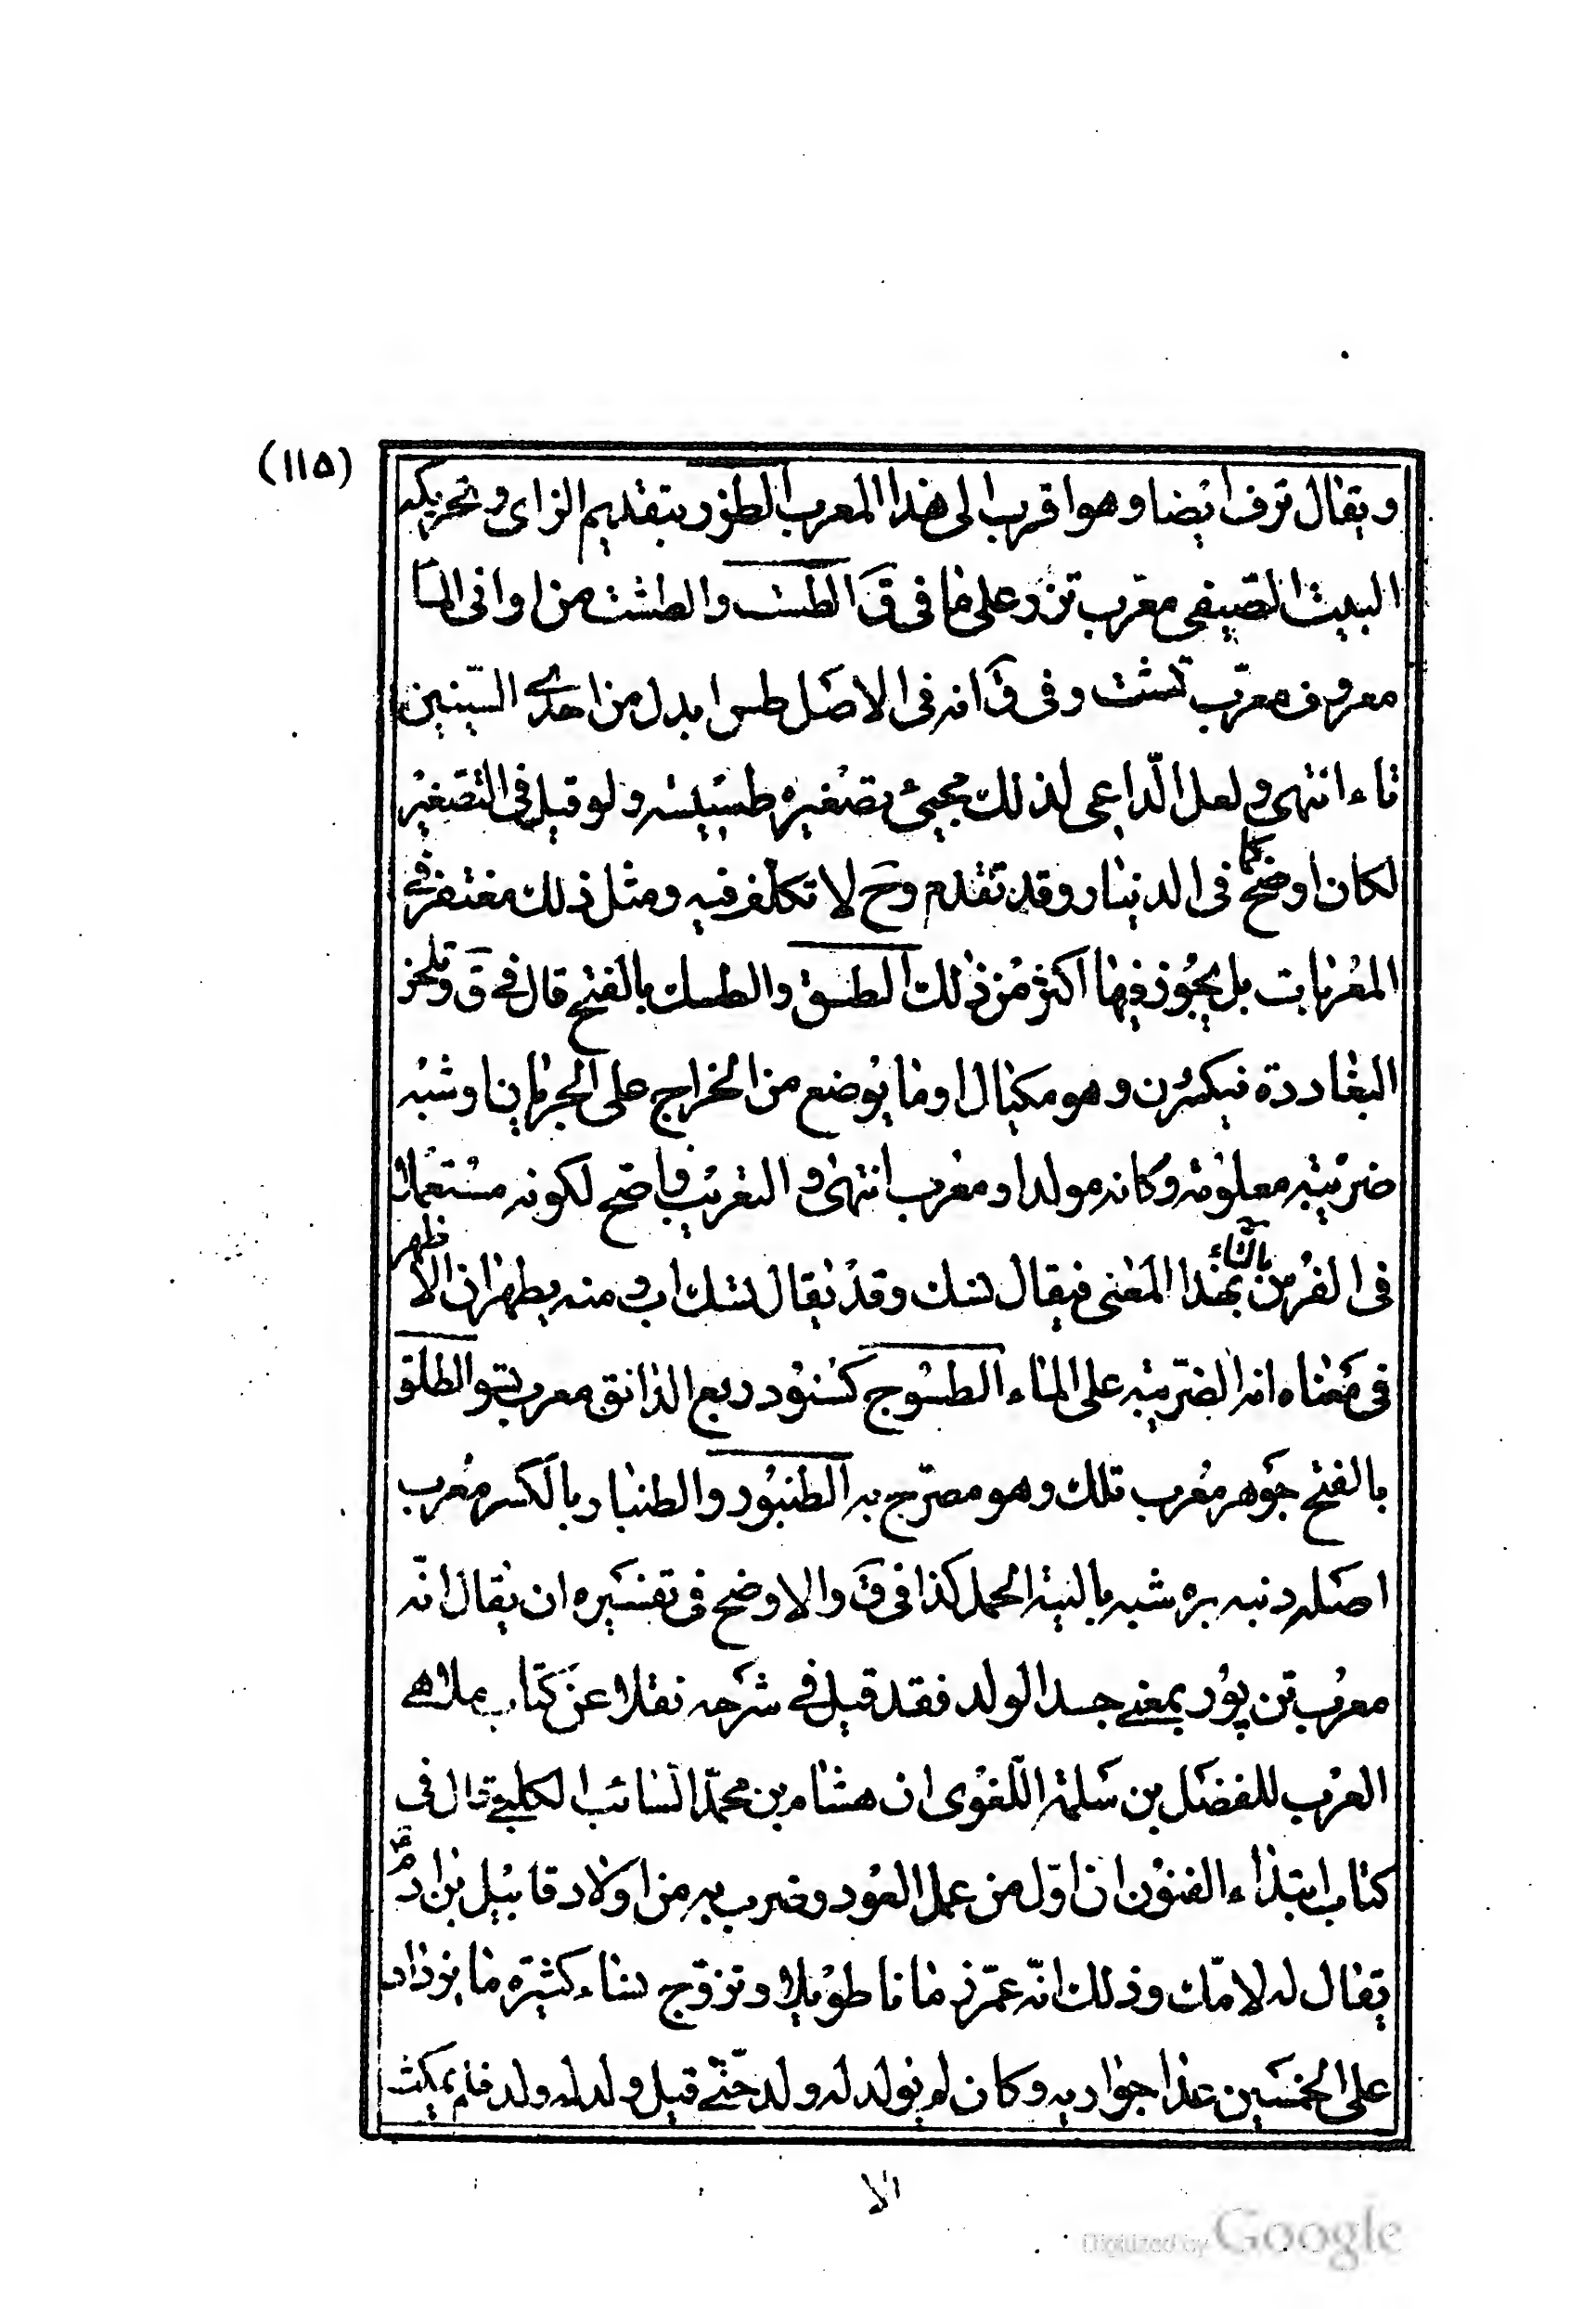 (١١۵)
ويقال ترف ايضا وهو اقرب الى هذا المعرب الطزر بتقديم الزاى وتحريكه
البيت الصيفى معرب تزر على ما فى ق الطست والطشت من اوانى الما
معروف معرب تشت وفى ق انه فى الاصل طس ابدل من احدى السينين
تاء انتهى ولعل الداعى لذلك مجيئ تصغيره طسيسه ولو قيل فى التصغير
لكان اوضح كما فى الدينار وقد تقدم وح لا تكلف فيه ومثل ذلك مغتفر فى
المعربات بل يجوز فيها اكثر من ذلك الطسق والطسك بالفتح قال فى ق وتلحز
البغاددة فيكسرن وهو مكيال او ما يوضع من الخراج على الجربان او شبه
ضريبة معلومة وكانه مولد او معرب انتهى والتعريب واضح لكونه مستعملا
فى الفرس بالتاء بهذا المعنى فيقال تسك وقد يقال تسك اب ومنه يظهر ان الاظهر
فى معناه انه الضريبة على الماء الطسوج كسنود ربع الدانق معرب تسو الطلق
بالفتح جوهر معرب تلك وهو مصرح به الطنبور والطنبار بالكسر معرب
اصله دنبه بره شبه بالية الحمل كذا فى ق والاوضح فى تفسيره ان يقال انه
معرب تن پور بمعنى جسد الولد فقد قيل فى شرحه نقلا عن كتاب ملاهى
العرب للفضل بن سلمة اللغوى ان هشام بن محمد السائب الكلبى قال فى
كتاب ابتداء الفنون ان اول من عمل العود وضرب به من اولاد قابيل بن ادم ع
يقال له لامك وذلك انه عمر زمانا طويلا وتزوج نساء كثيرة ما يزداد
على الخمسين عدا جواريه وكان لم يولد له ولد حتى قيل ولد له ولد فلم يمكث
الا
Digitized by Google